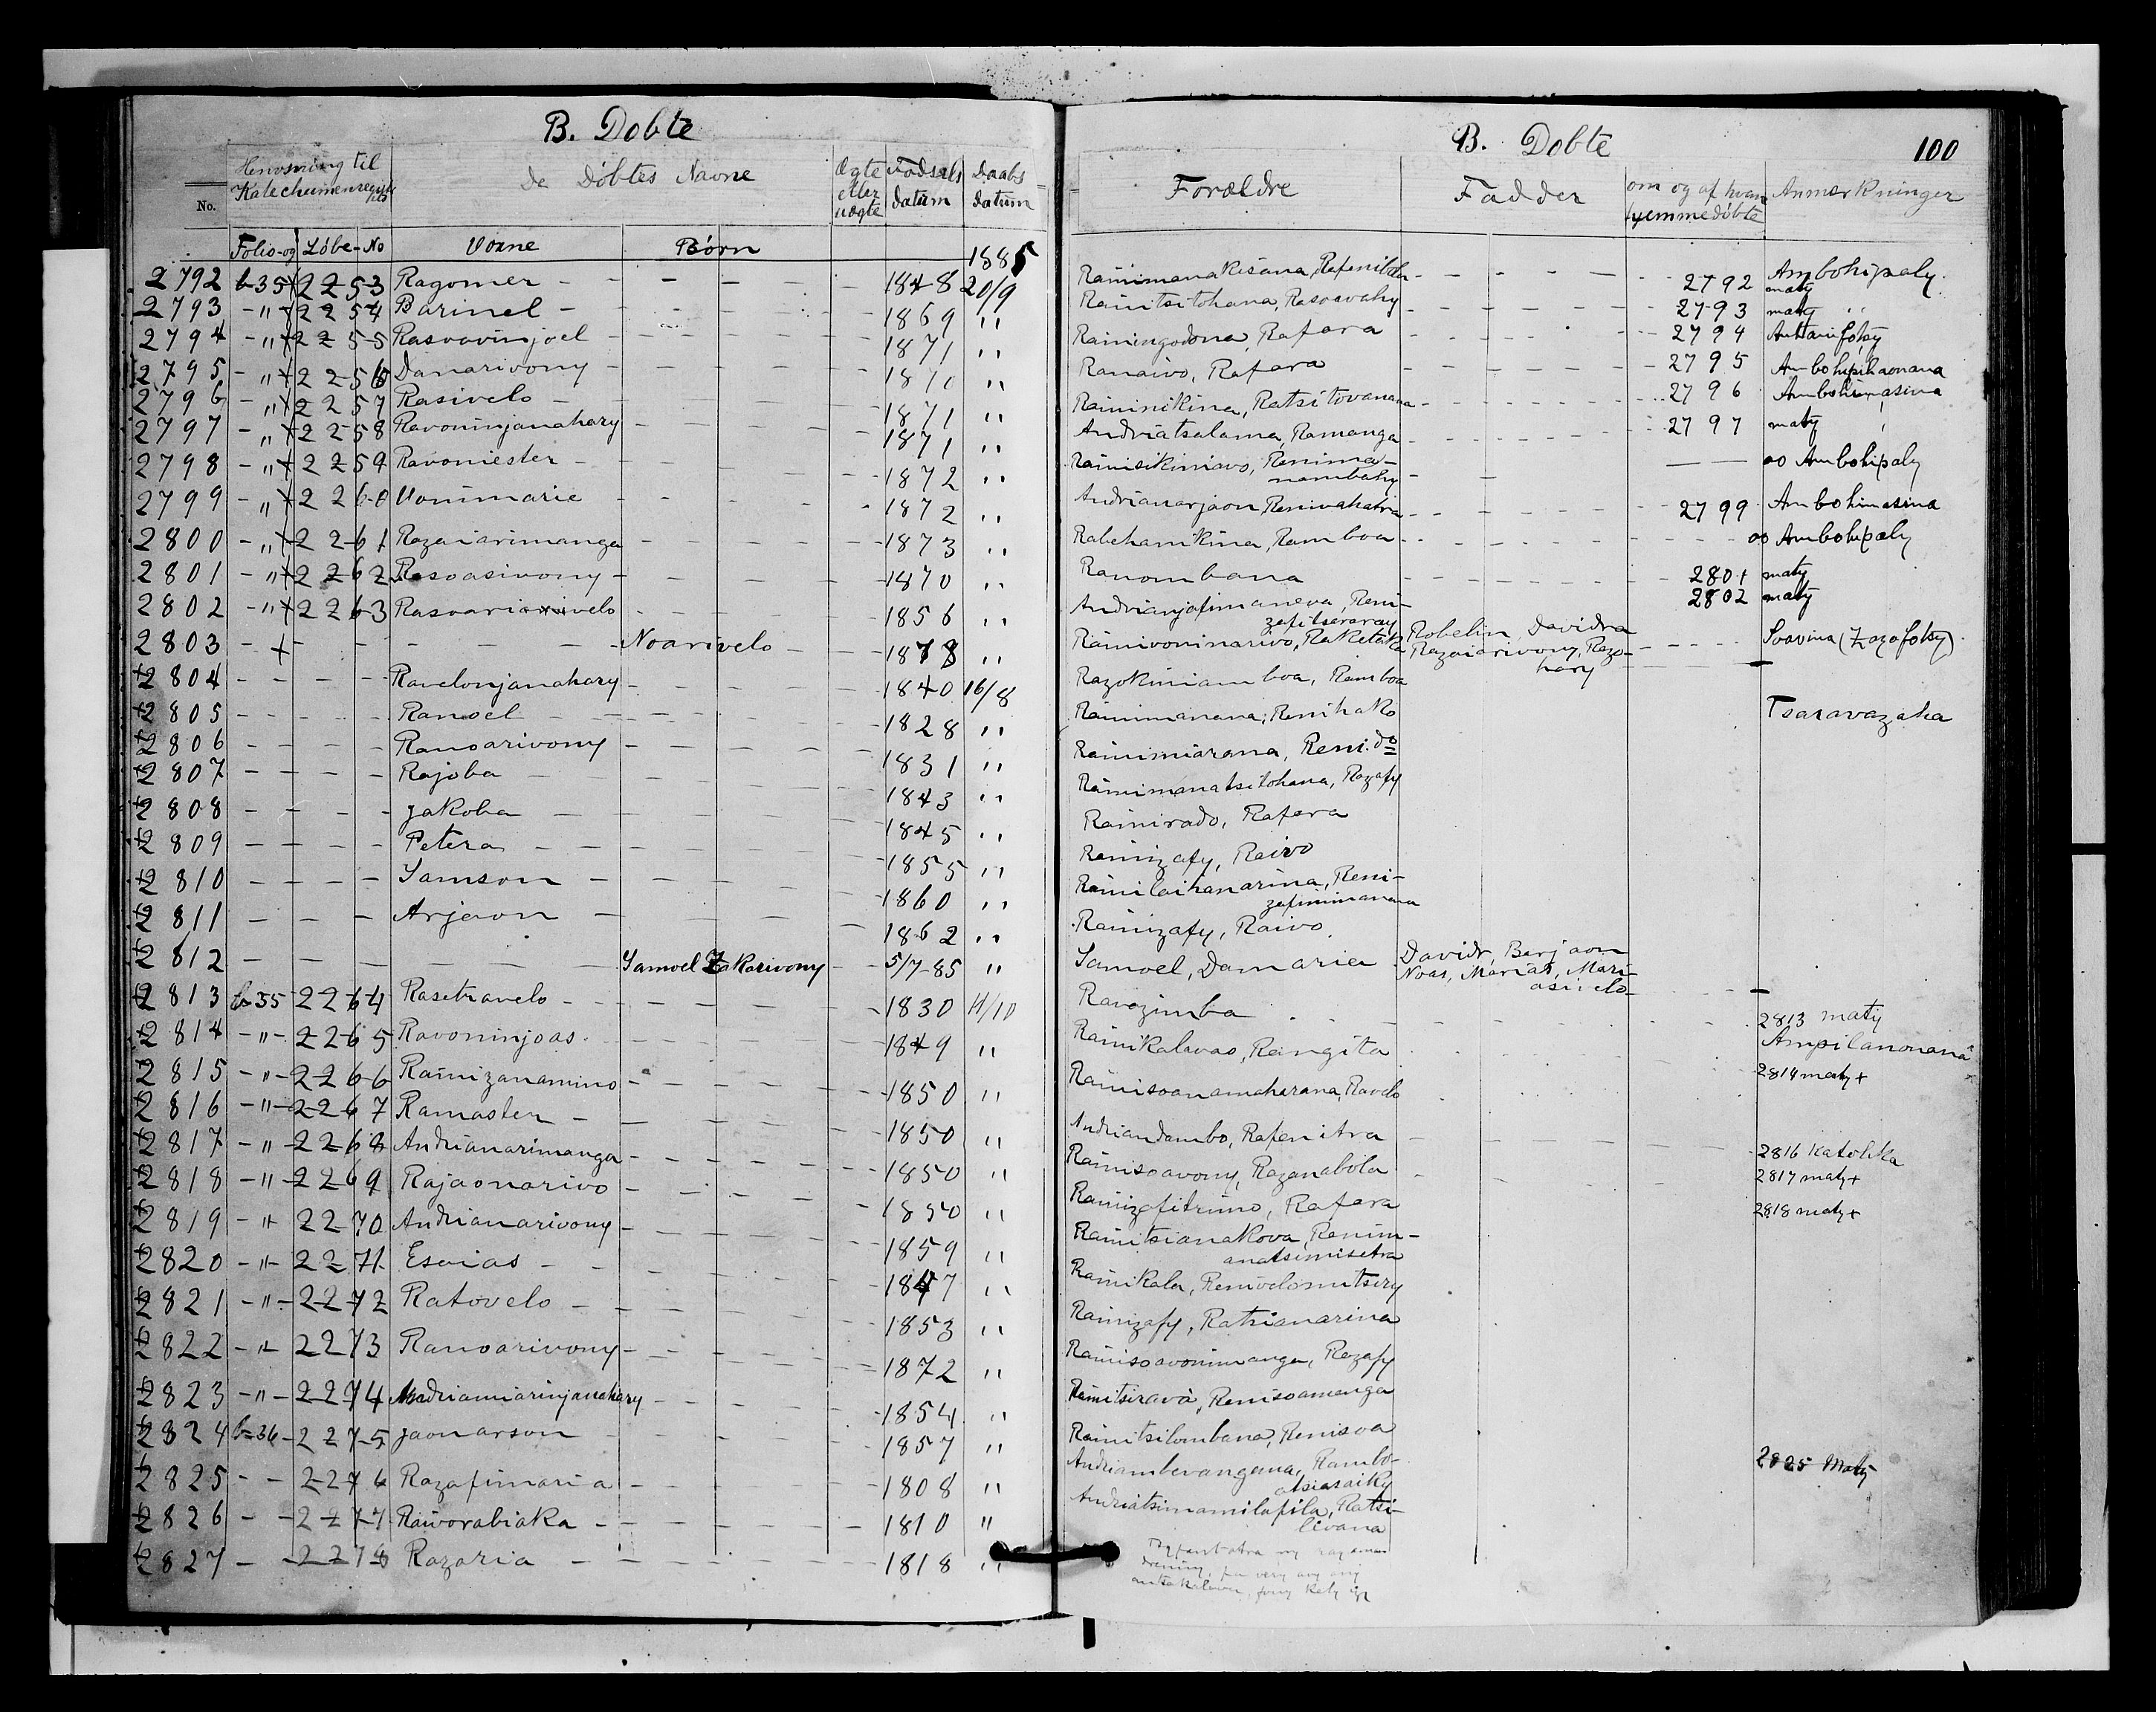 B. Døbte
Henvisning til
Katechumenregist
No.
De Døbtes Navne
Ægte eller uægte
Fødsels datum
Daabs datum
Folio- og Løbe-No
Voxne
Børn
1885
2792 b-35 2253 Ragomer 1848 20/9
2793 " 2254 Barinel 1869 "
2794 " 2255 Rasoavinjoel 1871 "
2795 " 2256 Danarivony 1870 "
2796 " 2257 Rasivelo 1871 "
2797 " 2258 Ravoninjanahary 1871 "
2798 " 2259 Ravoniester 1872 "
2799 " 2260 Vonimarie 1872 "
2800 " 2261 Razaiarimanga 1873 "
2801 " 2262 Rasoasivony 1870 "
2802 " 2263 Rasoarivelo 1856 "
2803 + Noarivelo 1878 "
2804 Ravelonjanahary 1840 16/8
2805 Ranoel 1828 "
2806 Ranoarivony 1831 "
2807 Rajoba 1843 "
2808 Jakoba 1845 "
2809 Petera 1855 "
2810 Samson 1860 "
2811 Arjaon 1862 "
2812 Samoel Zakarivony 5/7-85 "
2813 b-35 2264 Rasetravelo 1830 11/10
2814 " 2265 Ravoninjoas 1849 "
2815 " 2266 Rainizanamino 1850 "
2816 " 2267 Ramaster 1850 "
2817 " 2268 Andrianarimanga 1850 "
2818 " 2269 Rajaonarivo 1850 "
2819 " 2270 Andrianarivony 1859 "
2820 " 2271 Esaias 1847 "
2821 " 2272 Ratovelo 1853 "
2822 " 2273 Ranoarivony 1872 "
2823 " 2274 Andriamiarinjanahary 1854 "
2824 b-36 2275 Jaonarson 1857 "
2825 2276 Razafimaria 1808 "
2826 2277 Raivorabiaka 1810 "
2827 2278 Razaria 1818 "
B. Døbte
100
Forældre
Fadder
om og af hvem hjemmedøbte
Anmærkninger
Rainimanakisana, Rafenibola 2792 Ambohipaly
maty
Rainitsitohana, Rasoavahy 2793 maty "
Rainingodona, Rafara 2794 Antanifotsy
Ranaivo, Rafara 2795 Ambohipihaonana
Raininikina, Ratsitovanana 2796 Ambohimasina
Andriatsalama, Ramanga 2797 maty
Rainisikinivo, Renima-
nambahy oo Ambohipaly
Andrianarjaon, Renivahatra 2799 Ambohimasina
Rabehanikina, Ramboa oo Ambohipaly
Ranombana 2801 maty
Andrianjafimaneva, Reni-
zafitseraray 2802 maty
Rainivoninarivo, Raketaka Robelin, Davidra
Razaiarivony, Razo-
hary Soavina (Zazafotsy)
Razokiniamboa, Ramboa
Rainimanana, Renihako Tsaravazaha
Rainimiarana, Reni. do
Rainimanatsitohana, Razafy
Rainirado, Rafara
Rainizafy, Raivo
Rainilaihanarina, Reni-
zafinimanana
Rainizafy, Raivo
Samoel, Damaria Davidr, Berjaon
Noas, Marias, Mari-
asivelo
Ravozimba 2813 maty
Ampilanonana
Rainikalavao, Rangita
2814 maty +
Rainisoanamaharana, Ravelo
Andriandambo, Rafenitra 2816 Katolika
Rainisoavony, Razanabola 2817 maty +
Rainizafitrimo, Rafara 2818 maty +
Rainitsianakova, Renim-
anatsimisetra
Rainikala, Renivelomitsiry
Rainizafy, Ratrianarina
Rainisoavonimanga, Razafy
Rainitsirava, Renisoamanga
Rainitsilombana, Renisoa
Andriambevangana, Rambo-
atsiasaiky 2825 Maty
Andriatsimamilafila, Ratsi-
livana